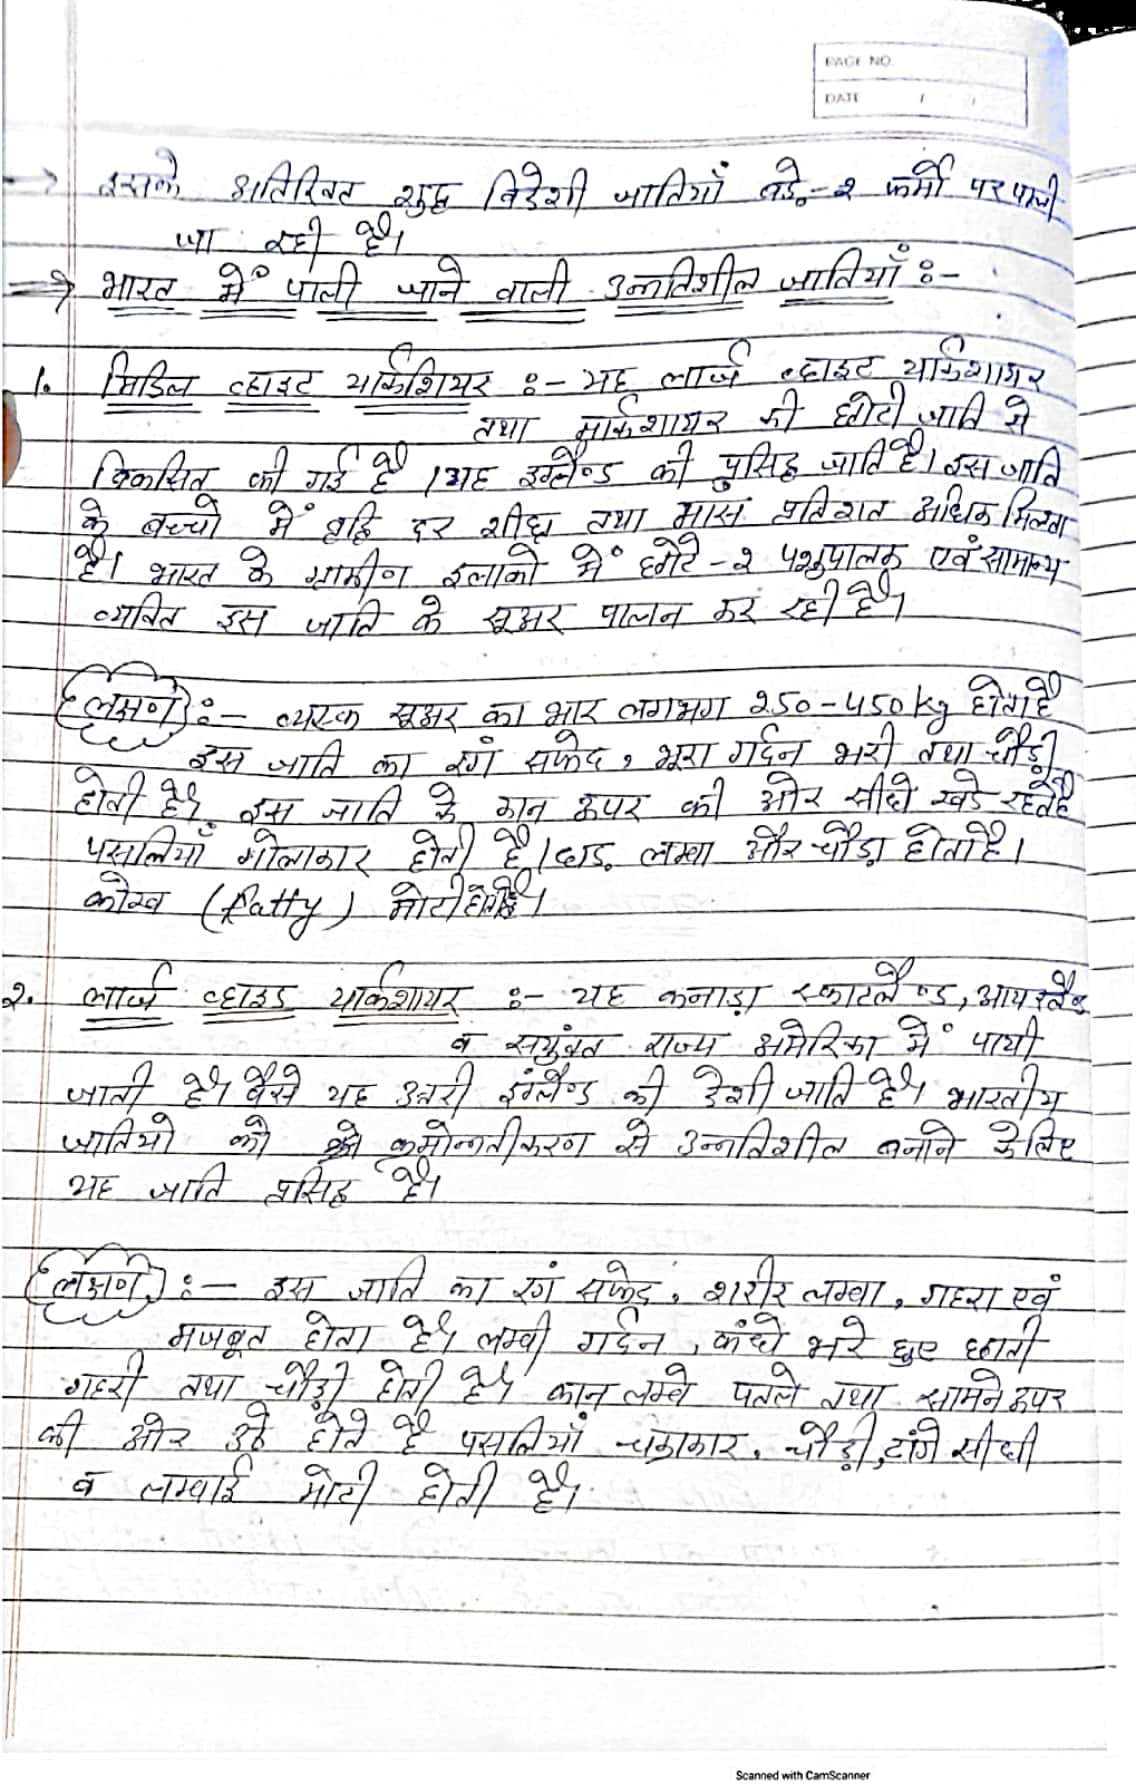 PAGE NO.
DATE / /
→ इसके अतिरिक्त शुद्ध विदेशी जातियाँ बडे-२ फर्मो पर पाली
जा रही है।
⇒ भारत में पाली जाने वाली उन्नतिशील जातियाँ :-
1. मिडिल व्हाइट यार्कशियर :- यह लार्ज व्हाइट यार्कशायर
तथा यार्कशायर की छोटी जाति से
विकसित की गई है। यह इंग्लैण्ड की प्रसिद्ध जाति है। इस जाति
के बच्चो में वृद्धि दर शीघ्र तथा मासं प्रतिशत अधिक मिलता
है। भारत के ग्रामीण इलाको में छोटे-२ पशुपालक एवं सामान्य
व्यक्ति इस जाति के सूअर पालन कर रही है।
लक्षण :- व्यस्क सूअर का भार लगभग 250-450kg होता है
इस जाति का रंग सफेद, भूरा गर्दन भरी तथा चौड़ी
होती है। इस जाति के कान ऊपर की ओर सीधे खडे रहते है
पसलियाँ गोलाकार होती है। धड़ लम्बा और चौड़ा होता है।
कोख (fatty) मोटी होती है।
2. लार्ज व्हाइड यार्कशायर :- यह कनाड़ा स्काटलैण्ड, आयरलैण्ड
व सयुंक्त राज्य अमेरिका में पायी
जाती है। वैसे यह उत्तरी इंग्लैण्ड की देशी जाति है। भारतीय
जातियो को क्रमोन्नतीकरण से उन्नतिशील बनाने के लिए
यह जाति प्रसिद्ध है।
लक्षण :- इस जाति का रंग सफेद, शरीर लम्बा, गहरा एवं
मजबूत होता है। लम्बी गर्दन, कंधे भरे हुए छाती
गहरी तथा चौड़ी होती है। कान लम्बे पतले तथा सामने ऊपर
की ओर उठे होते है पसलियाँ चक्राकार, चौड़ी, टांगे सीधी
व लम्बाई मोटी होती है।
Scanned with CamScanner